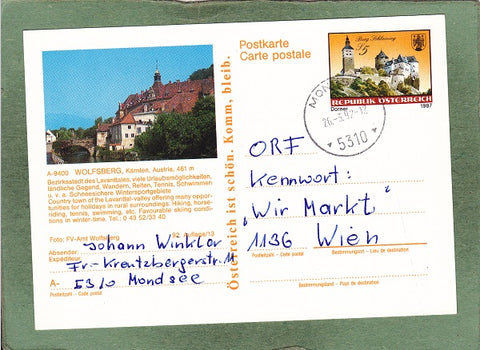 Postkarte
Carte postale
Burg Schlaining
S5
REPUBLIK ÖSTERREICH
Dorner
1987
26.-3.92-12
5310
A-9400 WOLFSBERG, Kärnten, Austria, 461 m
Bezirksstadt des Lavanttales, viele Urlaubsmöglichkeiten,
ländliche Gegend, Wandern, Reiten, Tennis, Schwimmen
u. v. a. Schneesichere Wintersportgebiete
Country town of the Lavanttal-valley offering many oppor-
tunities for holidays in rural surroundings. Hiking, horse-
riding, tennis, swimming, etc. Favourable skiing condi-
tions in winter-time. Tel.: 0 43 52/33 40
Foto: FV-Amt Wolfsberg
92. Auflage/13
Österreich ist schön. Komm, bleib.
Absender:
Expediteur:
Johann Winkler
Fr-Kreutzbergerstr. 11
A-
5310 Mondsee
Postleitzahl - Code postal
ORF
Kennwort:
"Wir Markt"
1136 Wien
Postleitzahl - Code postal
Bestimmungsort - Lieu de destination
Bestimmungsland - Pays de destination